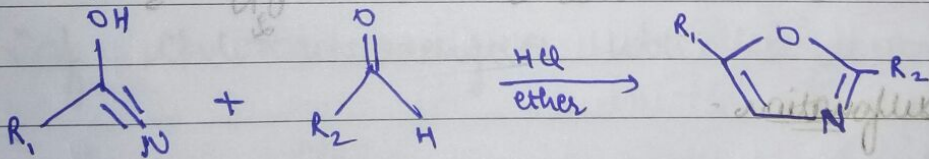 OH O
R₁ N + R₂ H HCl ether → R₁ O N R₂